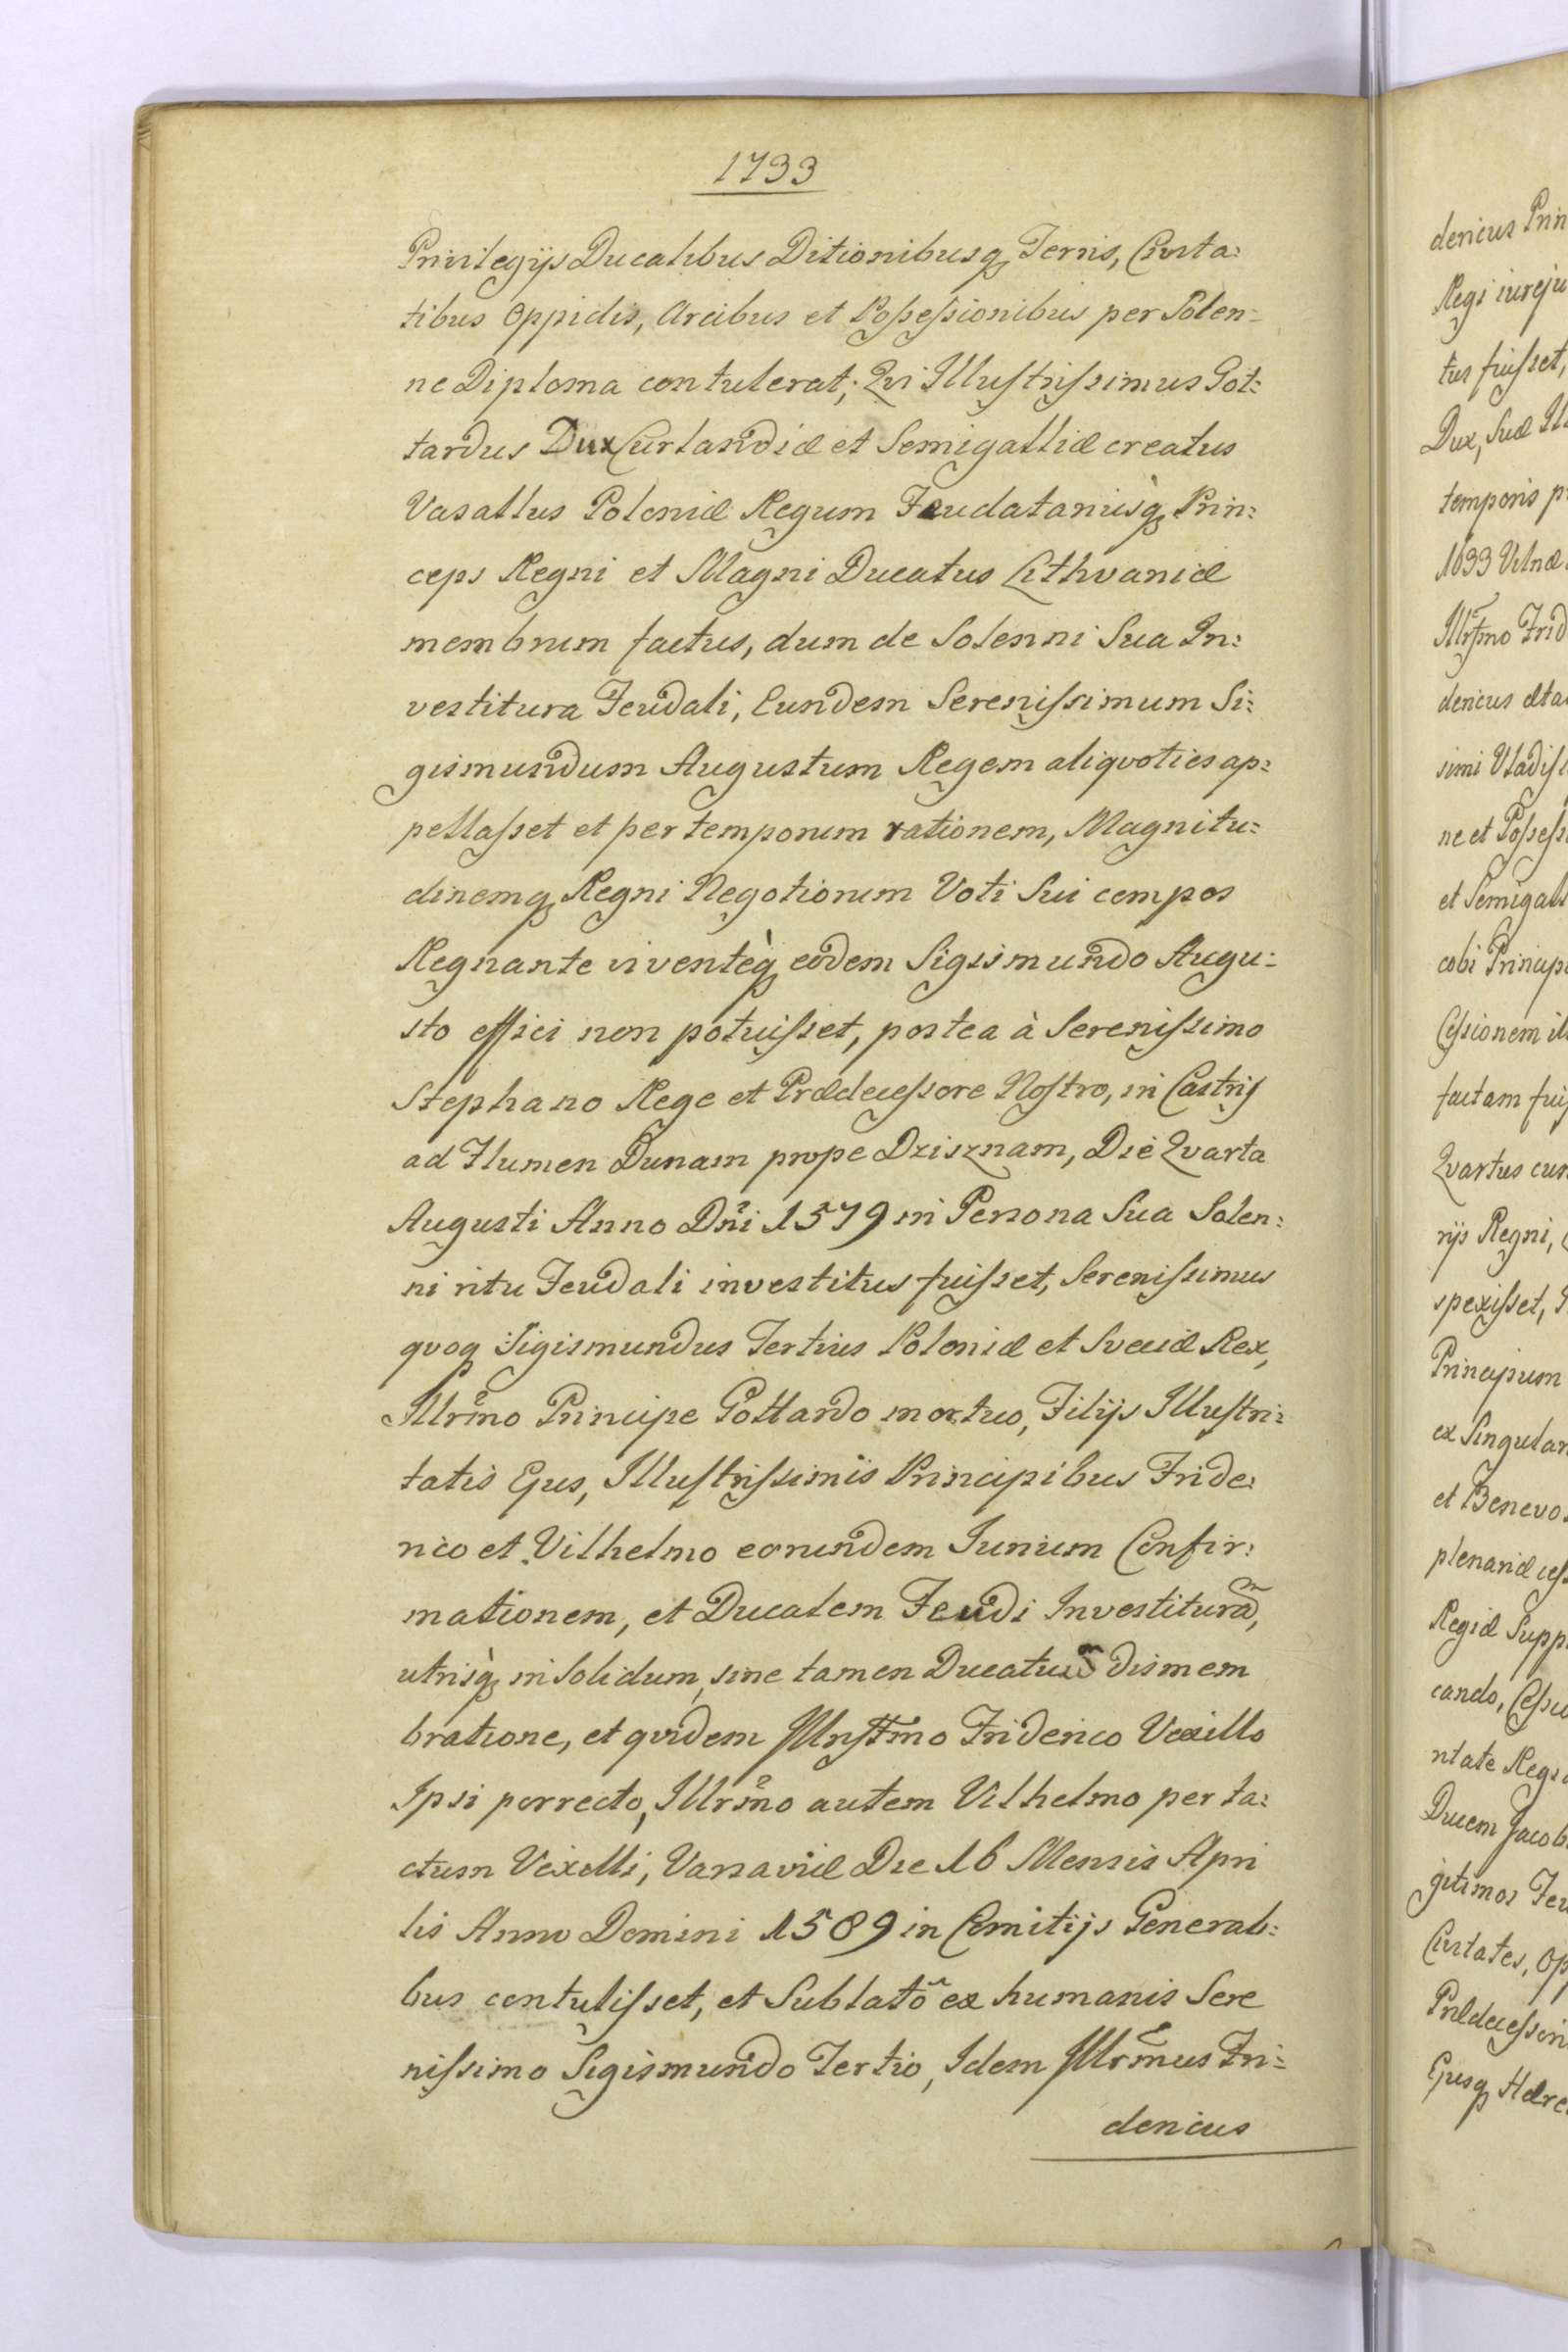 1733
Privilegijs Ducalibus Ditionibusq, Terris, Civita:
tibus Oppidis, Arcibus et Poſseſsionibus per Solen-
ne Diploma contulerat; Qvi Illuſtriſsimus Got:
tardus Dux Curlandiæ et Semigalliæ creatus
Vasallus Poloniæ Regum Feudatariusq, Prin:
ceps Regni et Magni Ducatus Lithvaniæ
membrum factus, dum de Solenni Sua In:
vestitura Feudali, Eundem Sereniſsimum Si:
gismundum Augustum Regem aliqvoties ap:
pellaſset et per temporum rationem, Magnitu:
dinemq, Regni Negotiorum Voti Sui compos
Regnante viventèq, eodem Sigismundo Augu:
sto effici non potuiſset, postea à Sereniſsimo
Stephano Rege et Prædeceſsore Noſtro, in Castris
ad Flumen Dunam prope Dzisznam, Die Qvarta
Augusti Anno Dñi 1579 in Persona Sua Solen:
ni ritu Feudali investitus fuiſset, Sereniſsimus
qvoq Sigismundus Tertius Poloniæ et Sveciæ Rex,
Illrm̃o Principe Gottardo mortuo, Filijs Illuſtri:
tatis Ejus, Illuſtriſsimis Principibus Fride:
rico et Vilhelmo eorundem Iurium Confir:
mationem, et Ducalem Feudi Investiturãm,
utrisq̀, in Solidum, sine tamen Ducatuum dismem
bratione, et qvidem Illuſtm̃o Friderico Vexillo
Ipsi porrecto, Illrm̃o autem Vilhelmo per ta:
ctum Vexilli, Varsaviæ Die 16 Mensis Apri
lis Anno Domini 1589 in Comitijs Generali:
bus contuliſset, et Sublatõ ex humanis Sere
niſsimo Sigismundo Tertio, Idem Illrm̃us Fri:
dericus
dericus Prin
Regi iureju
tus fuiſset,
Dux, Suæ Il
temporis p
1633 Vilnæ
Illrm̃o Frid
dericus æta
simi Vladiſl
ne et Poſseſs
et Semigall
cobi Principi
Ceſsionem il
factam fuiſ
Qvartus cum
rijs Regni,
spexiſset, I
Principum
ex Singulari
et Benevo
plenariæ ceſ
Regiæ Supp
cando, Ceſsi
ritate Regi
Ducem Jacob
gitimos Feu
Civitates, Op
Prædeceſsori
Ejusq, Hære